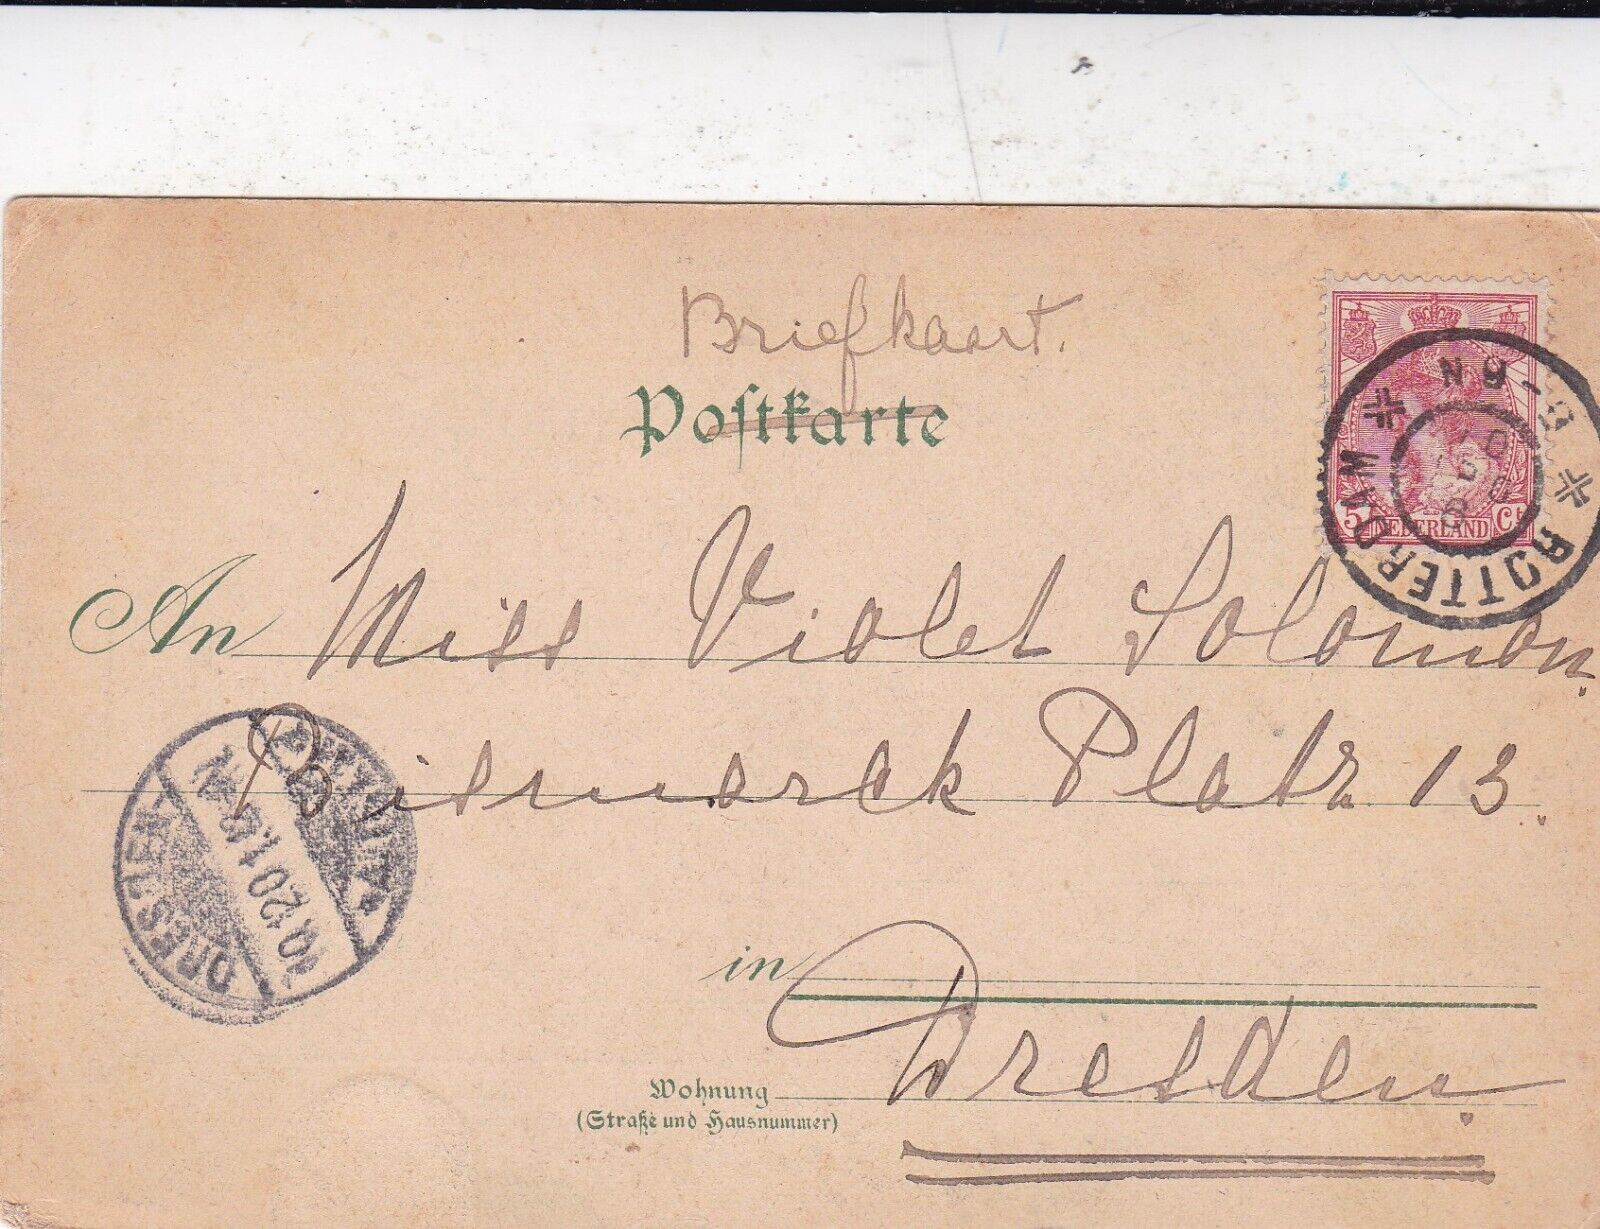 Briefkaart.
Postkarte
5 NEDERLAND Ct
ROTTERDAM
8-9N
An Miss Violet Solomon.
Bismarck Platz 13.
DRESDEN-ALTST.
in Dresden.
Wohnung
(Straße und Hausnummer)